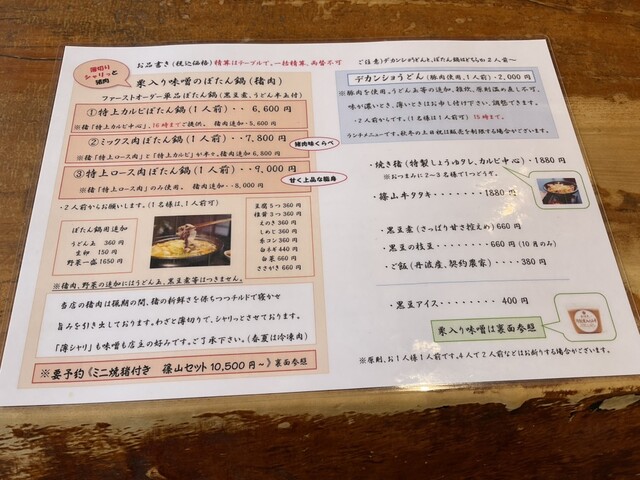 薄切り
シャリっと
猪肉
お品書き(税込価格)精算はテーブルで、一括精算、両替不可
栗入り味噌のぼたん鍋(猪肉)
ファーストオーダー単品ぼたん鍋(黒豆煮、うどん半玉付)
①特上カルビぼたん鍋(1人前)・・ 6,600円
※猪「特上カルビ中心」、16時までご提供、 猪肉追加 5,600円
②ミックス肉ぼたん鍋(1人前)・・7,800円
猪肉味くらべ
※猪「特上ロース肉」と「特上カルビ」が半々、猪肉追加6,800円
③特上ロース肉ぼたん鍋(1人前)・・9,000円
甘く上品な脂身
※猪「特上ロース肉」のみ使用、 猪肉追加・・8,000円
・2人前からお願います。(1名様は、1人前可)
ぼたん鍋用追加
うどん玉 360円
生卵 150円
野菜一盛 1650円
豆腐5つ360円
椎茸3つ360円
えのき 360円
しめじ 360円
糸コン 360円
白ネギ 440円
白菜 660円
ささがき 660円
※猪肉、野菜の追加にはうどん玉、黒豆煮等はつきません。
当店の猪肉は猟期の間、猪の新鮮さを保ちつつチルドで寝かせ
旨みを引き出しております。わざと薄切りで、シャリっとさせております。
「薄シャリ」も味噌も店主の好みです。ご了承下さい。(春夏は冷凍肉)
※要予約《ミニ焼猪付き 篠山セット 10,500円~》裏面参照
ご注意)デカンショうどんと、ぼたん鍋はどちらか2人前~
デカンショうどん(豚肉使用、1人前)・2,000円
※豚肉を使用。うどん玉等の追加、雑炊、原則温の直し不可。
味が濃いとき、薄いときはお申し付け下さい、調整できます。
・2人前からです。(1名様は1人前可) 15時まで
ランチメニューです。秋冬の土日祝は販売を制限する場合がございます。
・焼き猪(特製しょうゆタレ、カルビ中心)・1880円
※おつまみに2~3名様で1つどうぞ。
・篠山牛タタキ・・・・・・・・1880円
・黒豆煮(さっぱり甘さ控えめ)660円
・黒豆の枝豆・・・・・・・・660円(10月のみ)
・ご飯(丹波産、契約農家)・・・・380円
・黒豆アイス・・・・・・・・400円
栗入り味噌は裏面参照
※原則、お1人様1人前です。4人で2人前などはお断りする場合がございます。